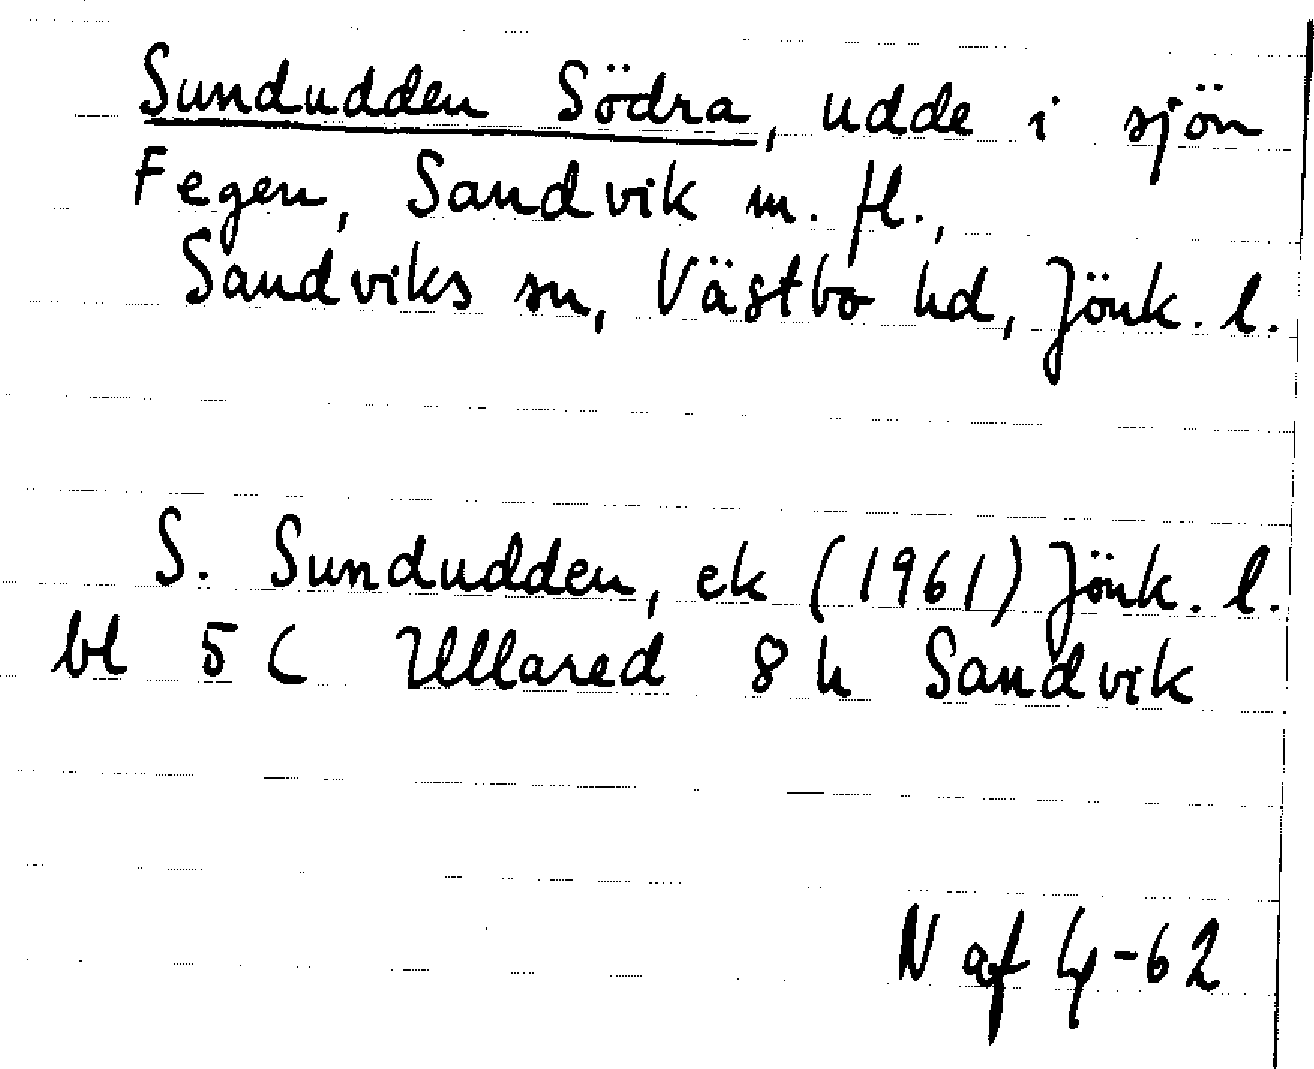 Sundudden Södra, udde i sjön
Fegen, Sandvik m. fl.,
Sandviks sn, Västbo hd, Jönk. l.
S. Sundudden, ek (1961) Jönk. l.
bl 5 C Ullared 8 h Sandvik
N af G-62